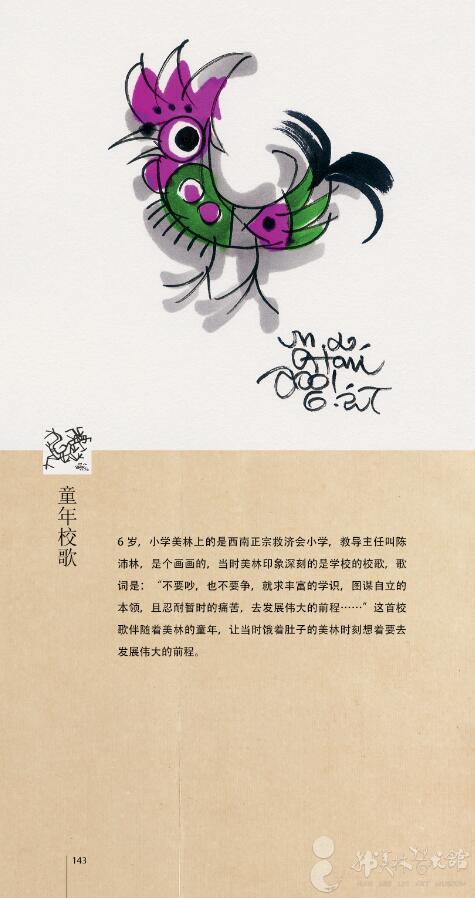 2001.
童年校歌
6 岁，小学美林上的是西南正宗救济会小学，教导主任叫陈
沛林，是个画画的，当时美林印象深刻的是学校的校歌，歌
词是：“不要吵，也不要争，就求丰富的学识，图谋自立的
本领，且忍耐暂时的痛苦，去发展伟大的前程……”这首校
歌伴随着美林的童年，让当时饿着肚子的美林时刻想着要去
发展伟大的前程。
143
韩美林艺术馆
HAN MEI LIN ART MUSEUM